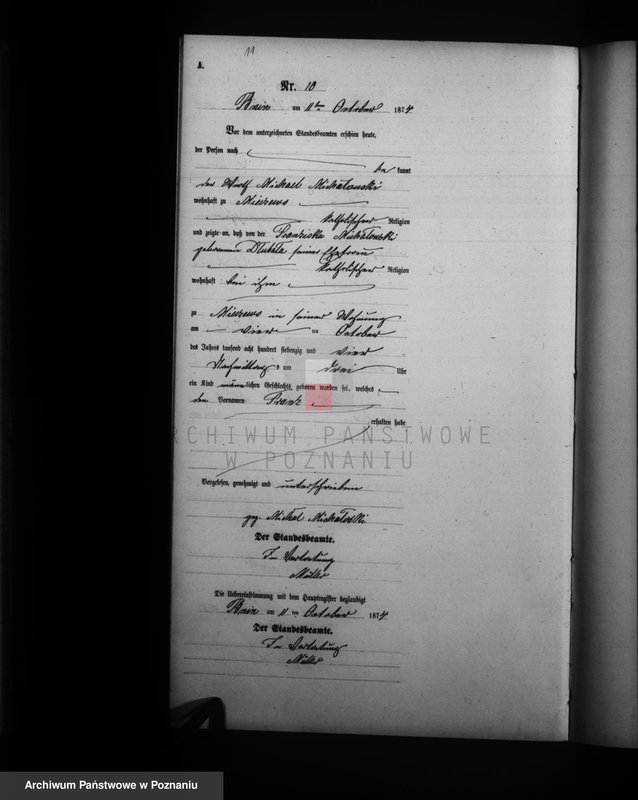 11
A.
Nr. 10
Bnin am 11ten October 1874
Vor dem unterzeichneten Standesbeamten erschien heute,
der Person nach
be kannt
der Wirth Michael Michalowski
wohnhaft zu
katholischer Religion
und zeigte an, daß von der Franziska Michalowski
geborenen seiner Ehefrau
katholischer Religion
wohnhaft bei ihm
zu in seiner Wohnung
am vier ten October
des Jahres tausend acht hundert siebenzig und vier
Nachmittags um drei Uhr
ein Kind männlichen Geschlechts geboren worden sei, welches
den Vornamen Franz
erhalten habe
ARCHIWUM PAŃSTWOWE
W POZNANIU
Vorgelesen, genehmigt und unterschrieben
gez. Michal Michaloski
Der Standesbeamte.
In Vertretung
Müller
Die Uebereinstimmung mit dem Hauptregister beglaubigt
Bnin am 11 ten October 1874
Der Standesbeamte.
In Vertretung
Müller
Archiwum Państwowe w Poznaniu